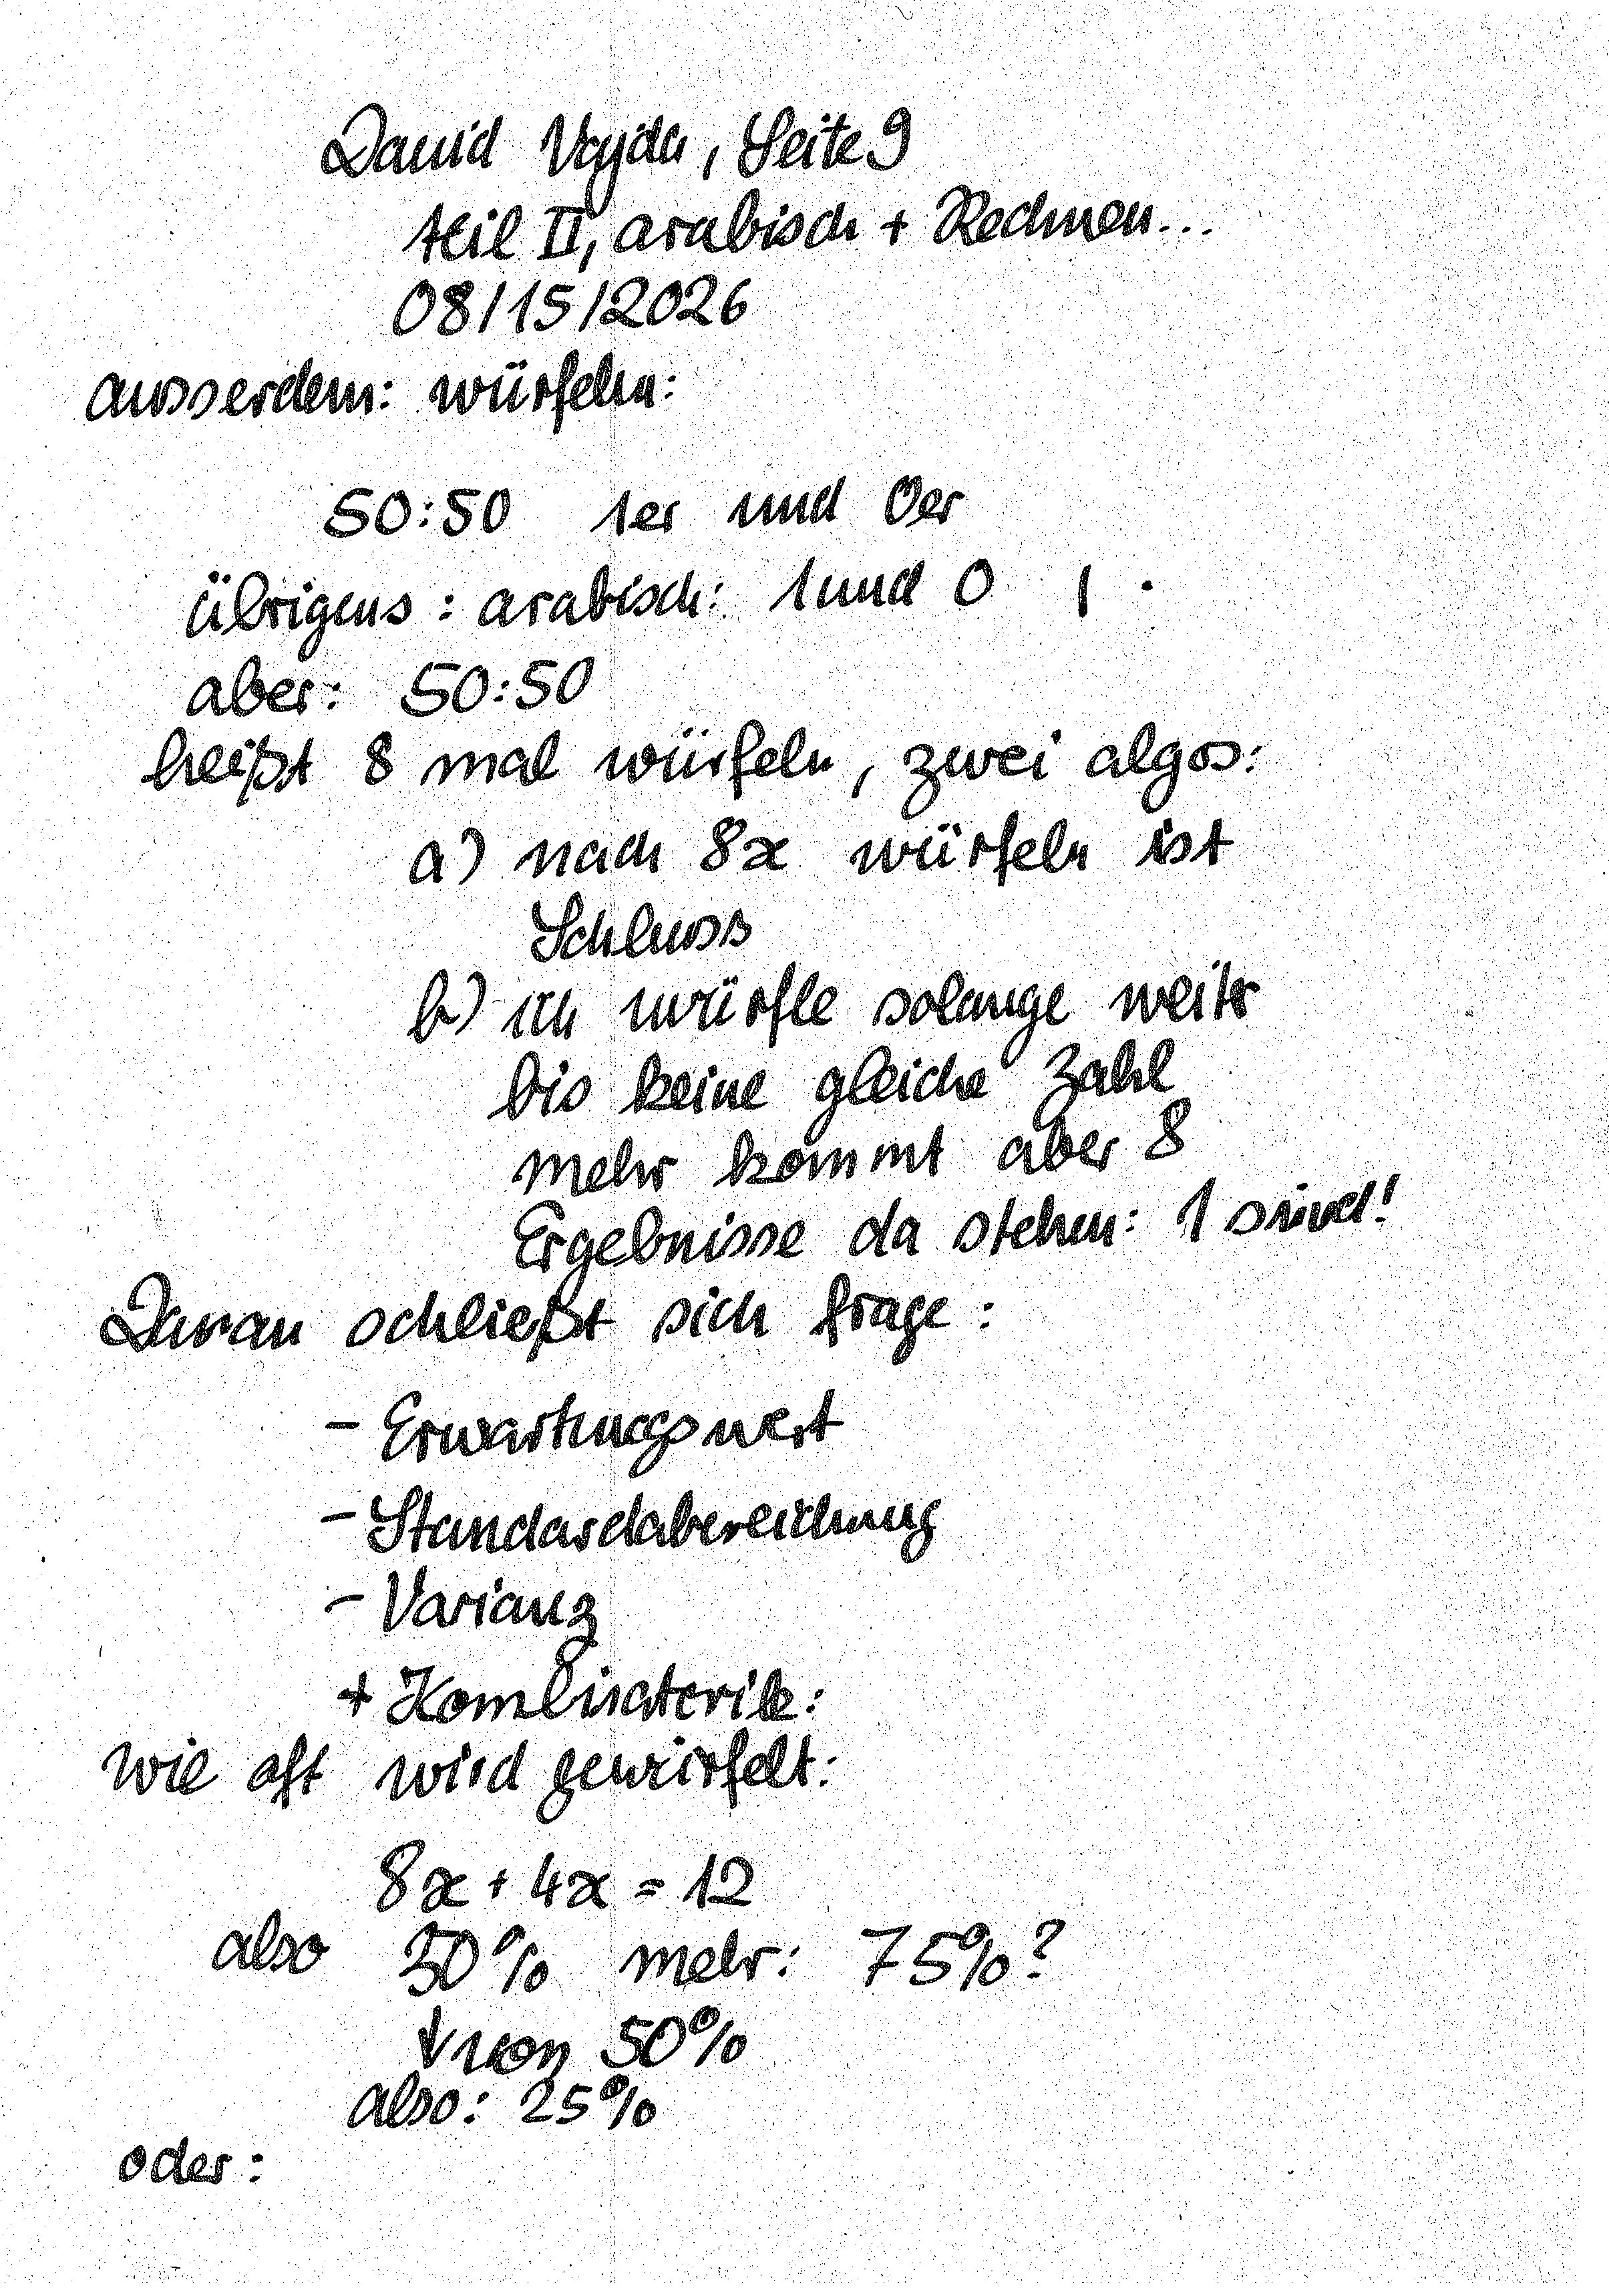 David Vajda, Seite 9
teil II, arabisch + Rechnen...
08/15/2026
ausserdem: würfeln:
50:50 1er und 0er
übrigens: arabisch: 1 und 0 ١ ٠
aber: 50:50
heißt 8 mal würfeln, zwei algos:
a) nach 8x würfeln ist
Schluss
b) ich würfle solange weiter
bis keine gleiche Zahl
mehr kommt aber 8
Ergebnisse da stehen: 1 sind!
Daran schließt sich frage:
- Erwartungswert
- Standardabweichung
- Varianz
+ Kombinatorik:
wie oft wird gewürfelt:
8x + 4x = 12
also 50% mehr: 75%?
↓ von 50%
also: 25%
oder: